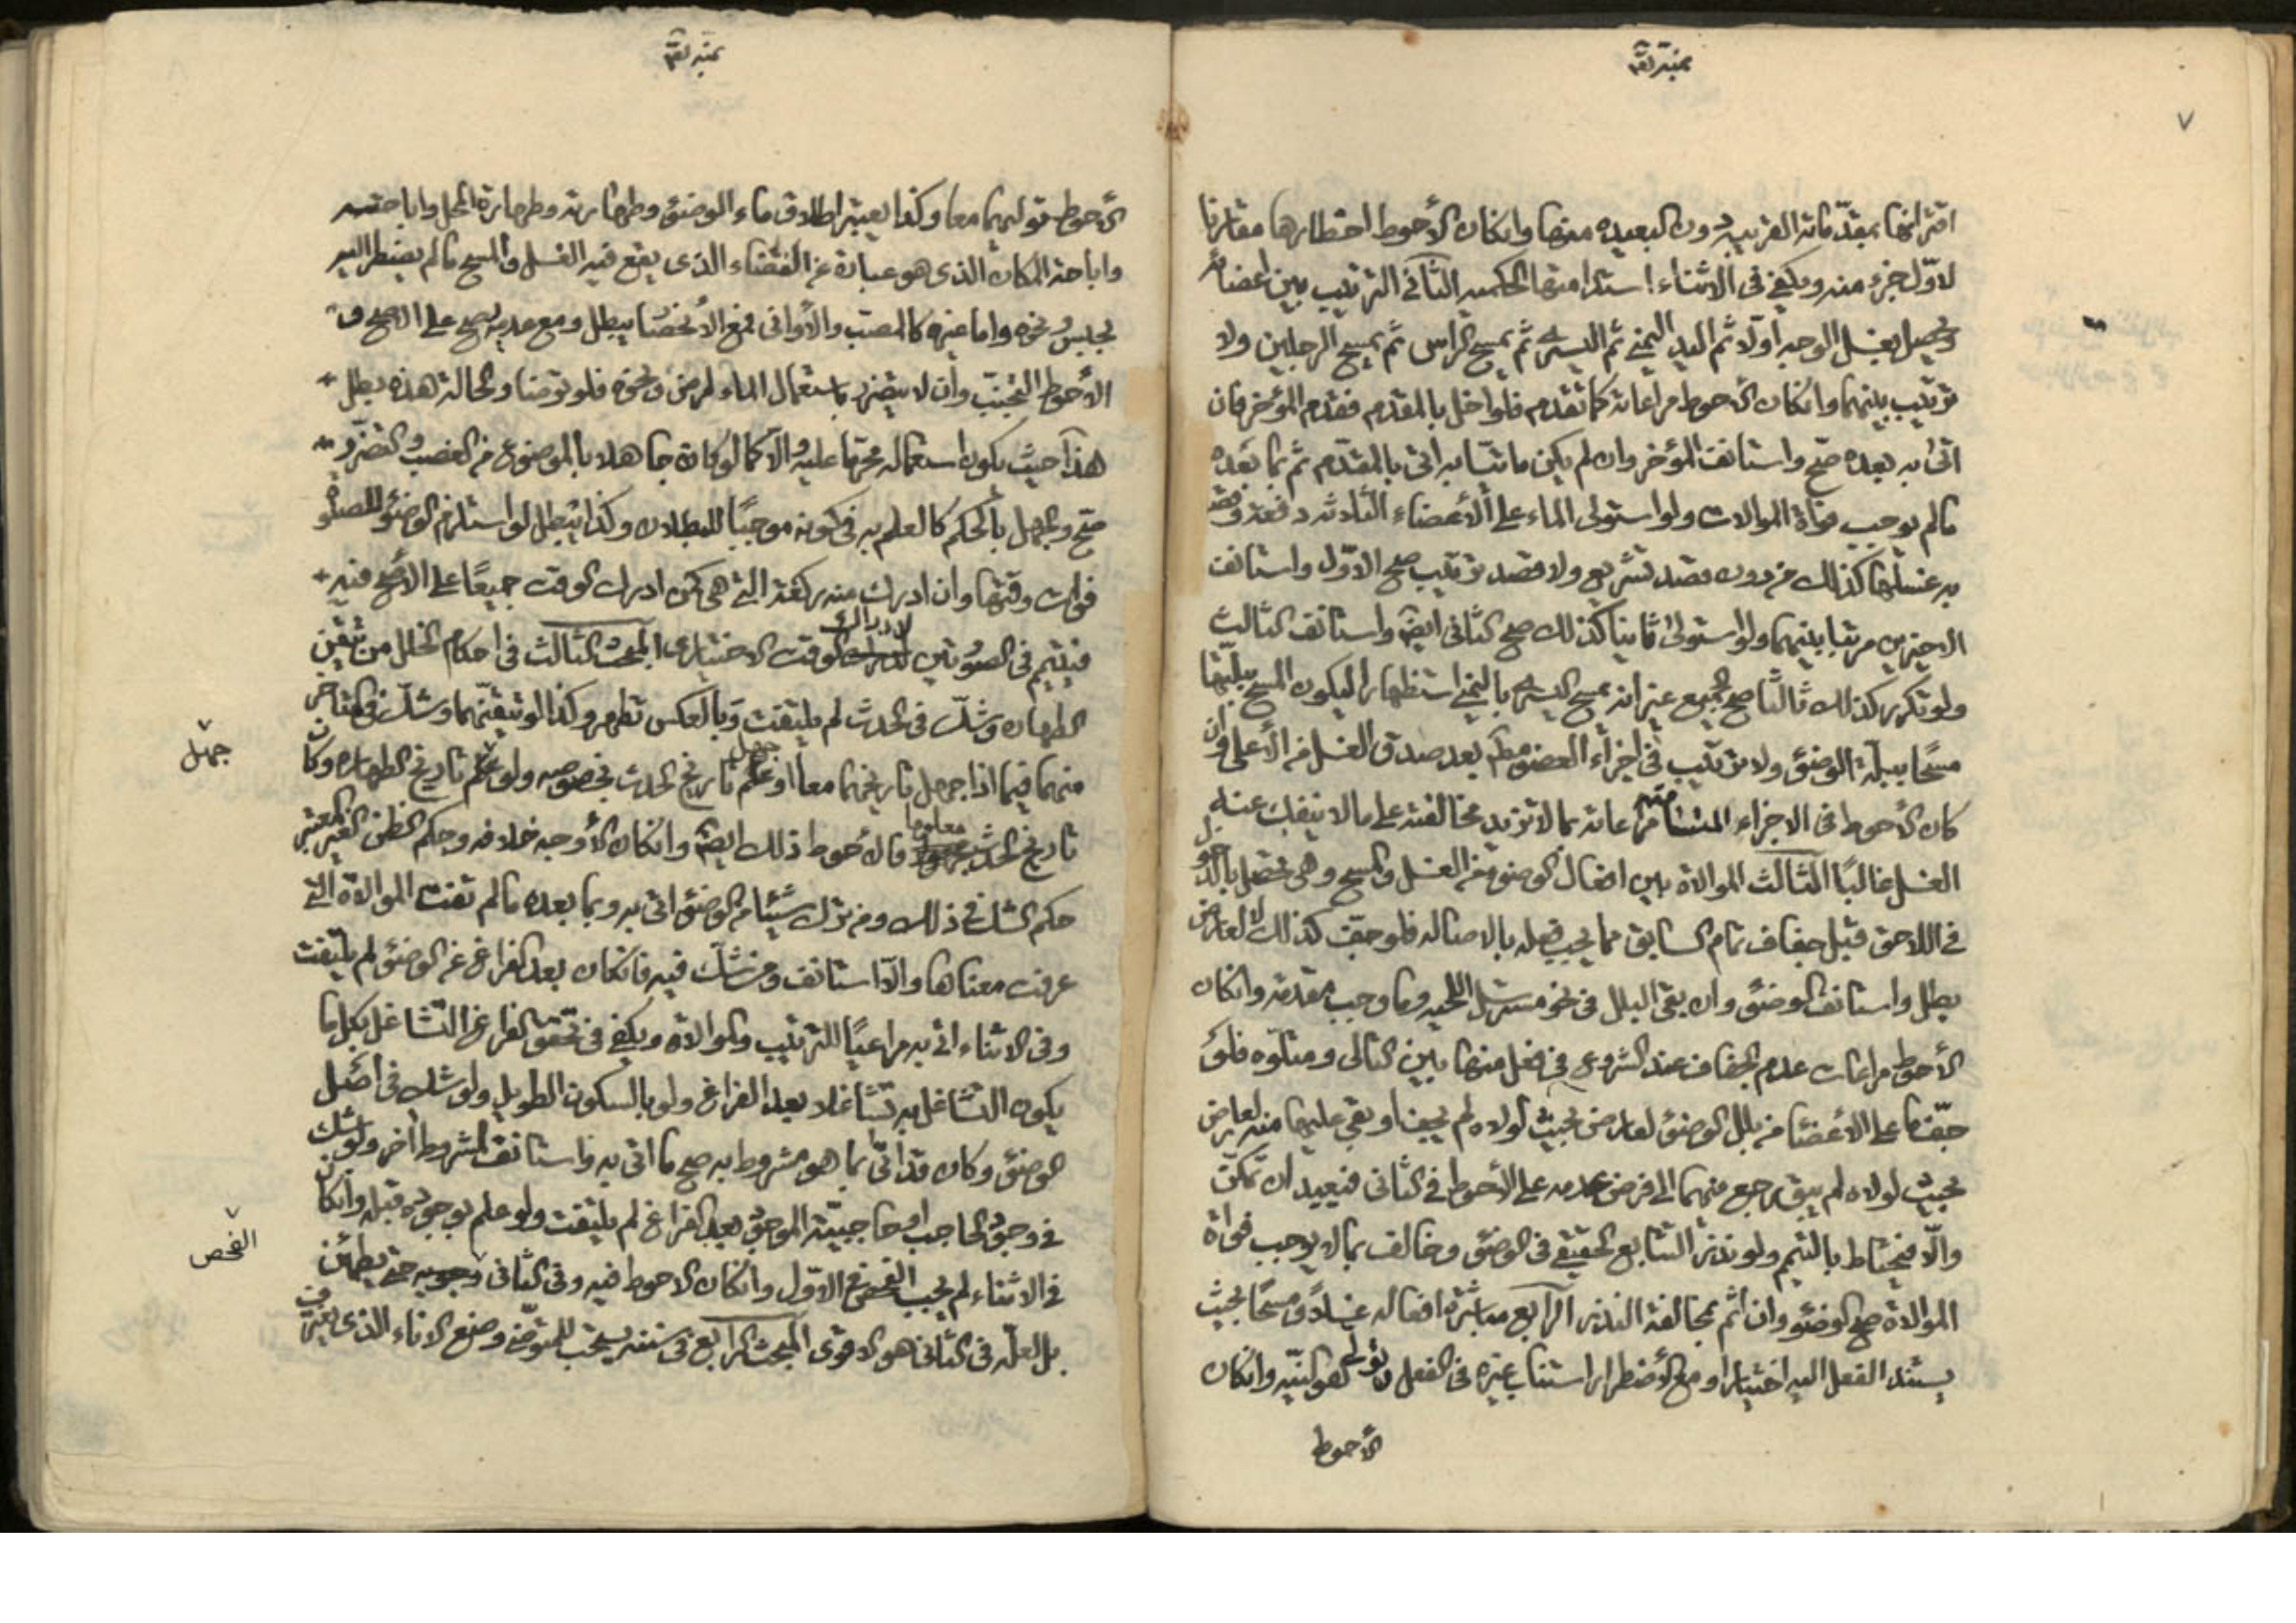 ٧
اقترانها بمقدماته القريبه دون البعيده منها وانكان الأحوط احظارها مقارنا
لاول جزء منه ويكفي في الاثناء استدامتها الحكميه الثاني الترتيب بين اعضائه
ويحصل بغسل الوجه اولا ثم اليد اليمني ثم اليسرى ثم يمسح الراس ثم يمسح الرجلين ولا
ترتيب بينهما وانكان الاحوط مراعاته كما تقدم فلو اخل بالمقدم فقدم المؤخر فان
اتى به بعده صح واستانف المؤخر وان لم يكن ماتيا به اتى بالمقدم ثم بما بعده
مالم يوجب فواة الموالات ولو استولى الماء على الأعضاء الثلاثه دفعة وقصد
به غسلها كذلك من دون قصد تشريع ولا قصد ترتيب صح الاول واستانف
الاخيرين مرتبا بينهما ولو استولى ثانيا كذلك صح الثاني ايضا واستانف الثالث
ولو تكرر كذلك ثالثا صح الجميع غير انه يمسح اليسرى باليمني استظهارا ليكون المسح ببلتها
مسحا ببلة الوضوء ولا ترتيب في اجزاء العضو مطم بعد صدق الغسل من الأعلى وان
كان الأحوط في الاجزاء المتسامته مراعاته بما لا تزيد مخالفته على مالا ينفك عنه
الغسل غالبا الثالث الموالاة بين افعال الوضوء من الغسل والمسح وهي تحصل بالدخول
في اللاحق قبل جفاف تمام السابق مما يجب فعله بالاصاله فلو جف كذلك لا لعارض
بطل واستانف الوضوء وان بقى البلل في نحو مسترسل اللحيه وما وجب مقدمة وانكان
الأحوط مراعات عدم الجفاف عند الشروع في فعل منها بين التالى ومتلوه فلو
جففا على الأعضاء من بلل الوضوء لعارض بحيث لولاه لم يجفا او بقى عليهما منه لعارض
بحيث لولاه لم يبق رجع منهما الى فرض عدمه على الأحوط في الثانى فيعيد ان تمكن
والا فيحتاط بالتيمم ولو نذر التتابع الحقيقي في الوضوء وخالف بما لا يوجب فواة
الموالاة صح الوضوء وان اثم بمخالفة النذر الرابع مباشرة افعاله غسلا ومسحا بحيث
يستند الفعل اليه اختيارا ومع الأضطرار استناب غيره في الفعل وتولى هو النيه وانكان
الأحوط
الأحوط توليهما معا وكذا يعتبر اطلاق ماء الوضوء وطهارته وطهارة المحل واباحته
واباحة المكان الذى هو عبارة عن الفضاء الذى يقع فيه الغسل والمسح مالم يضطر اليه
بحبس ونحوه واما غيره كالمصب والأوانى فمع الانحصار يبطل ومع عدمه يصح على الاصح و
الأحوط التجنب وان لا يتضرر باستعمال الماء لمرض ونحوه فلو توضا والحالة هذه بطل
هذا حيث يكون استعماله محرما عليه والا كما لو كان جاهلا بالموضوع من الغصب والتضرر
صح والجهل بالحكم كالعلم به في كونه موجبا للبطلان وكذا يبطل لو استلزم الوضوء للصلوة
فوات وقتها وان ادرك منه ركعة التي هي كمن ادرك الوقت جميعا على الأصح فيه
فيتيمم في الصورتين لادراك الوقت الاختيارى المبحث الثالث في احكام الخلل من تيقن
الطهاره وشك في الحدث لم يلتفت وبالعكس تطهر وكذا لو تيقنهما وشك في المتاخر
منهما فيما اذا جهل تاريخهما معا او جهل تاريخ الحدث بخصوصه ولو علم تاريخ الطهاره وكان
جهل
تاريخ الحدث معلوما فالأحوط ذلك ايضا وانكان الأوجه خلافه وحكم الظن الغير المعتبر
حكم الشك في ذلك ومن ترك شيئا من الوضوء اتى به وبما بعده مالم تفت الموالاة التي
عرفت معناها والا استانف ومن شك فيه فانكان بعد الفراغ عن الوضوء لم يلتفت
وفى الاثناء اتى به مراعيا للترتيب والموالاة ويكفي في تحقق الفراغ التشاغل بكل ما
يكون التشاغل به تشاغلا بعد الفراغ ولو بالسكون الطويل ولو شك في اصل
الوضوء وكان قد اتى بما هو مشروط به صح ما اتى به واستانف لمشروط اخر ولو شك
في وجود الحاجب او حاجبيته الموجود بعد الفراغ لم يلتفت ولو علم بوجوده قبله وانكان
في الاثناء لم يجب الفحص في الاول وانكان الاحوط فيه وفى الثانى وجوبه حتى يطمئن
الفحص
بل لعله في الثانى هو الاقوى المبحث الرابع في سننه يستحب للمتوضى وضع الاناء الذى يغترف